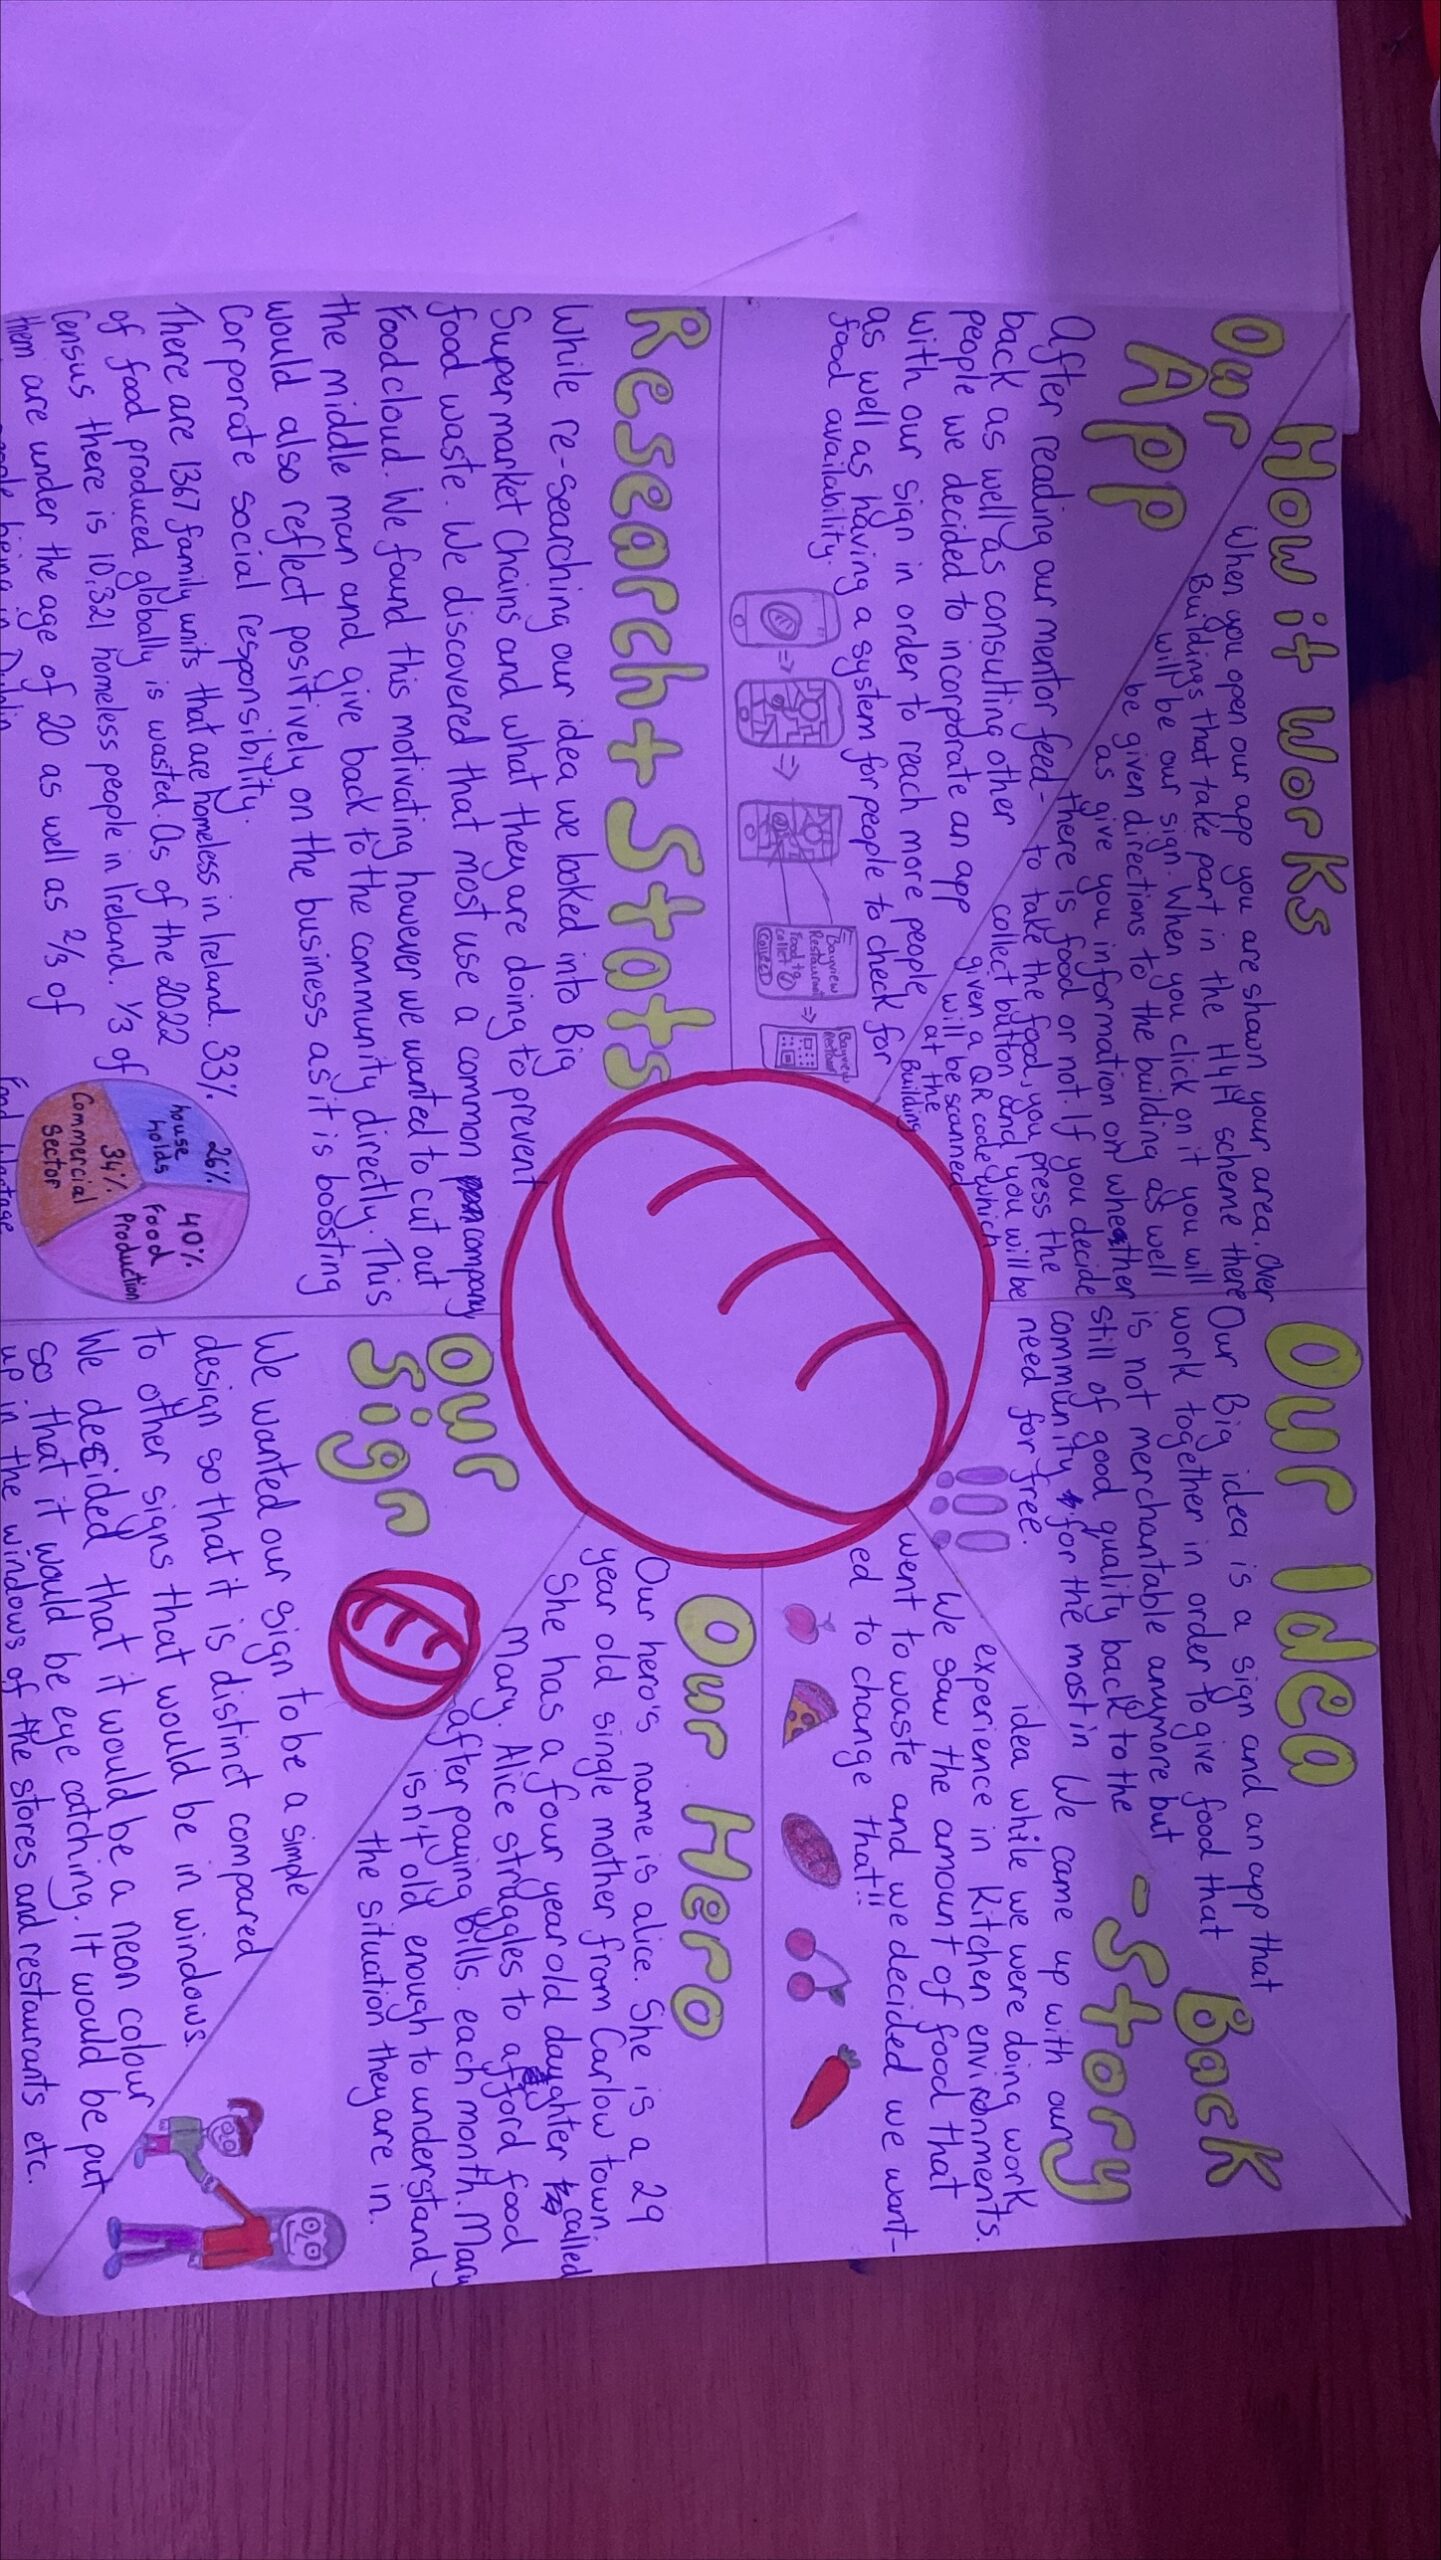 How it Works
When you open our app you are shown your area. Over
Buildings that take part in the H4H scheme there
will be our sign. When you click on it you will
be given directions to the building as well
as give you information on wheather
there is food or not. If you decide
to take the food, you press the
collect button and you will be
given a QR code which
will be scanned
at the
Building
Our
App
After reading our mentor feed-
back as well as consulting other
people we decided to incorporate an app
with our sign in order to reach more people
as well as having a system for people to check for
food availability.
Bayview
Restaurant
Food to
collect
Collect
Bayview
Restaurant
Research + Stats
While re-searching our idea we looked into Big
Supermarket Chains and what they are doing to prevent
food waste. We discovered that most use a common company
Foodcloud. We found this motivating however we wanted to cut out
the middle man and give back to the community directly. This
would also reflect positively on the business as it is boosting
Corporate social responsibility.
There are 1367 family units that are homeless in Ireland. 33%
of food produced globally is wasted. As of the 2022
Census there is 10:321 homeless people in Ireland. 1/3 of
them are under the age of 20 as well as 2/3 of
26%
house
holds
34%
Commercial
Sector
40%
Food
Production
Our Idea
Our Big idea is a sign and an app that
work together in order to give food that
is not merchantable anymore but
still of good quality back to the
community for the most in
need for free.
Back
-Story
We came up with our
idea while we were doing work
experience in Kitchen environments.
We saw the amount of food that
went to waste and we decided we want-
ed to change that!!
!!!
Our Hero
Our hero's name is alice. She is a 29
year old single mother from Carlow town.
She has a four year old daughter called
Mary. Alice struggles to afford food
after paying Bills each month. Mary
isn't old enough to understand
the situation they are in.
Our
Sign
We wanted our sign to be a simple
design so that it is distinct compared
to other signs that would be in windows.
We desided that it would be a neon colour
so that it would be eye catching. It would be put
up in the windows of the stores and restaurants etc.